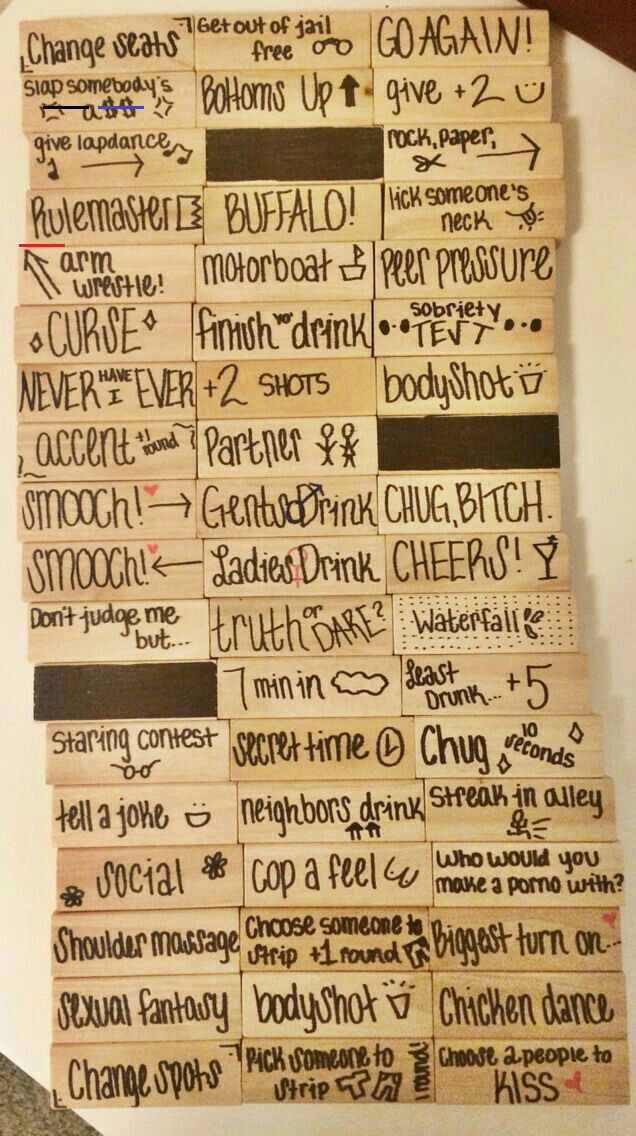 Change seats
Get out of jail
free
GO AGAIN!
Slap somebody's
a$$
Bottoms Up
give +2
give lapdance
rock, paper,
Rulemaster
BUFFALO!
lick someone's
neck
arm
wrestle!
motorboat
Peer pressure
CURSE
finish yo' drink
sobriety
TEST
NEVER HAVE I EVER
+2 SHOTS
bodyshot
accent +1 round
Partner
SMOOCH!
Gents Drink
CHUG, BITCH.
SMOOCH!
Ladies Drink
CHEERS!
Don't judge me
but...
truth or DARE?
Waterfall
7 min in
Least
Drunk... +5
Staring contest
secret time
Chug 10 seconds
tell a joke
neighbors drink
Streak in alley
social
Cop a feel
Who would you
make a porno with?
Shoulder massage
Choose someone to
strip +1 round
Biggest turn on...
Sexual fantasy
bodyshot
Chicken dance
Change spots
Pick someone to
strip 1 round!
Choose 2 people to
KISS